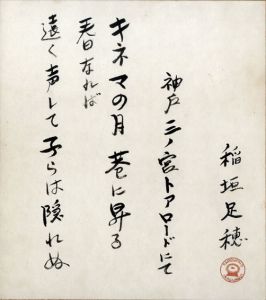 稲垣足穂
神戸三ノ宮トアロードにて
キネマの月巷に昇る
春なれば
遠く声して子らは隠れぬ